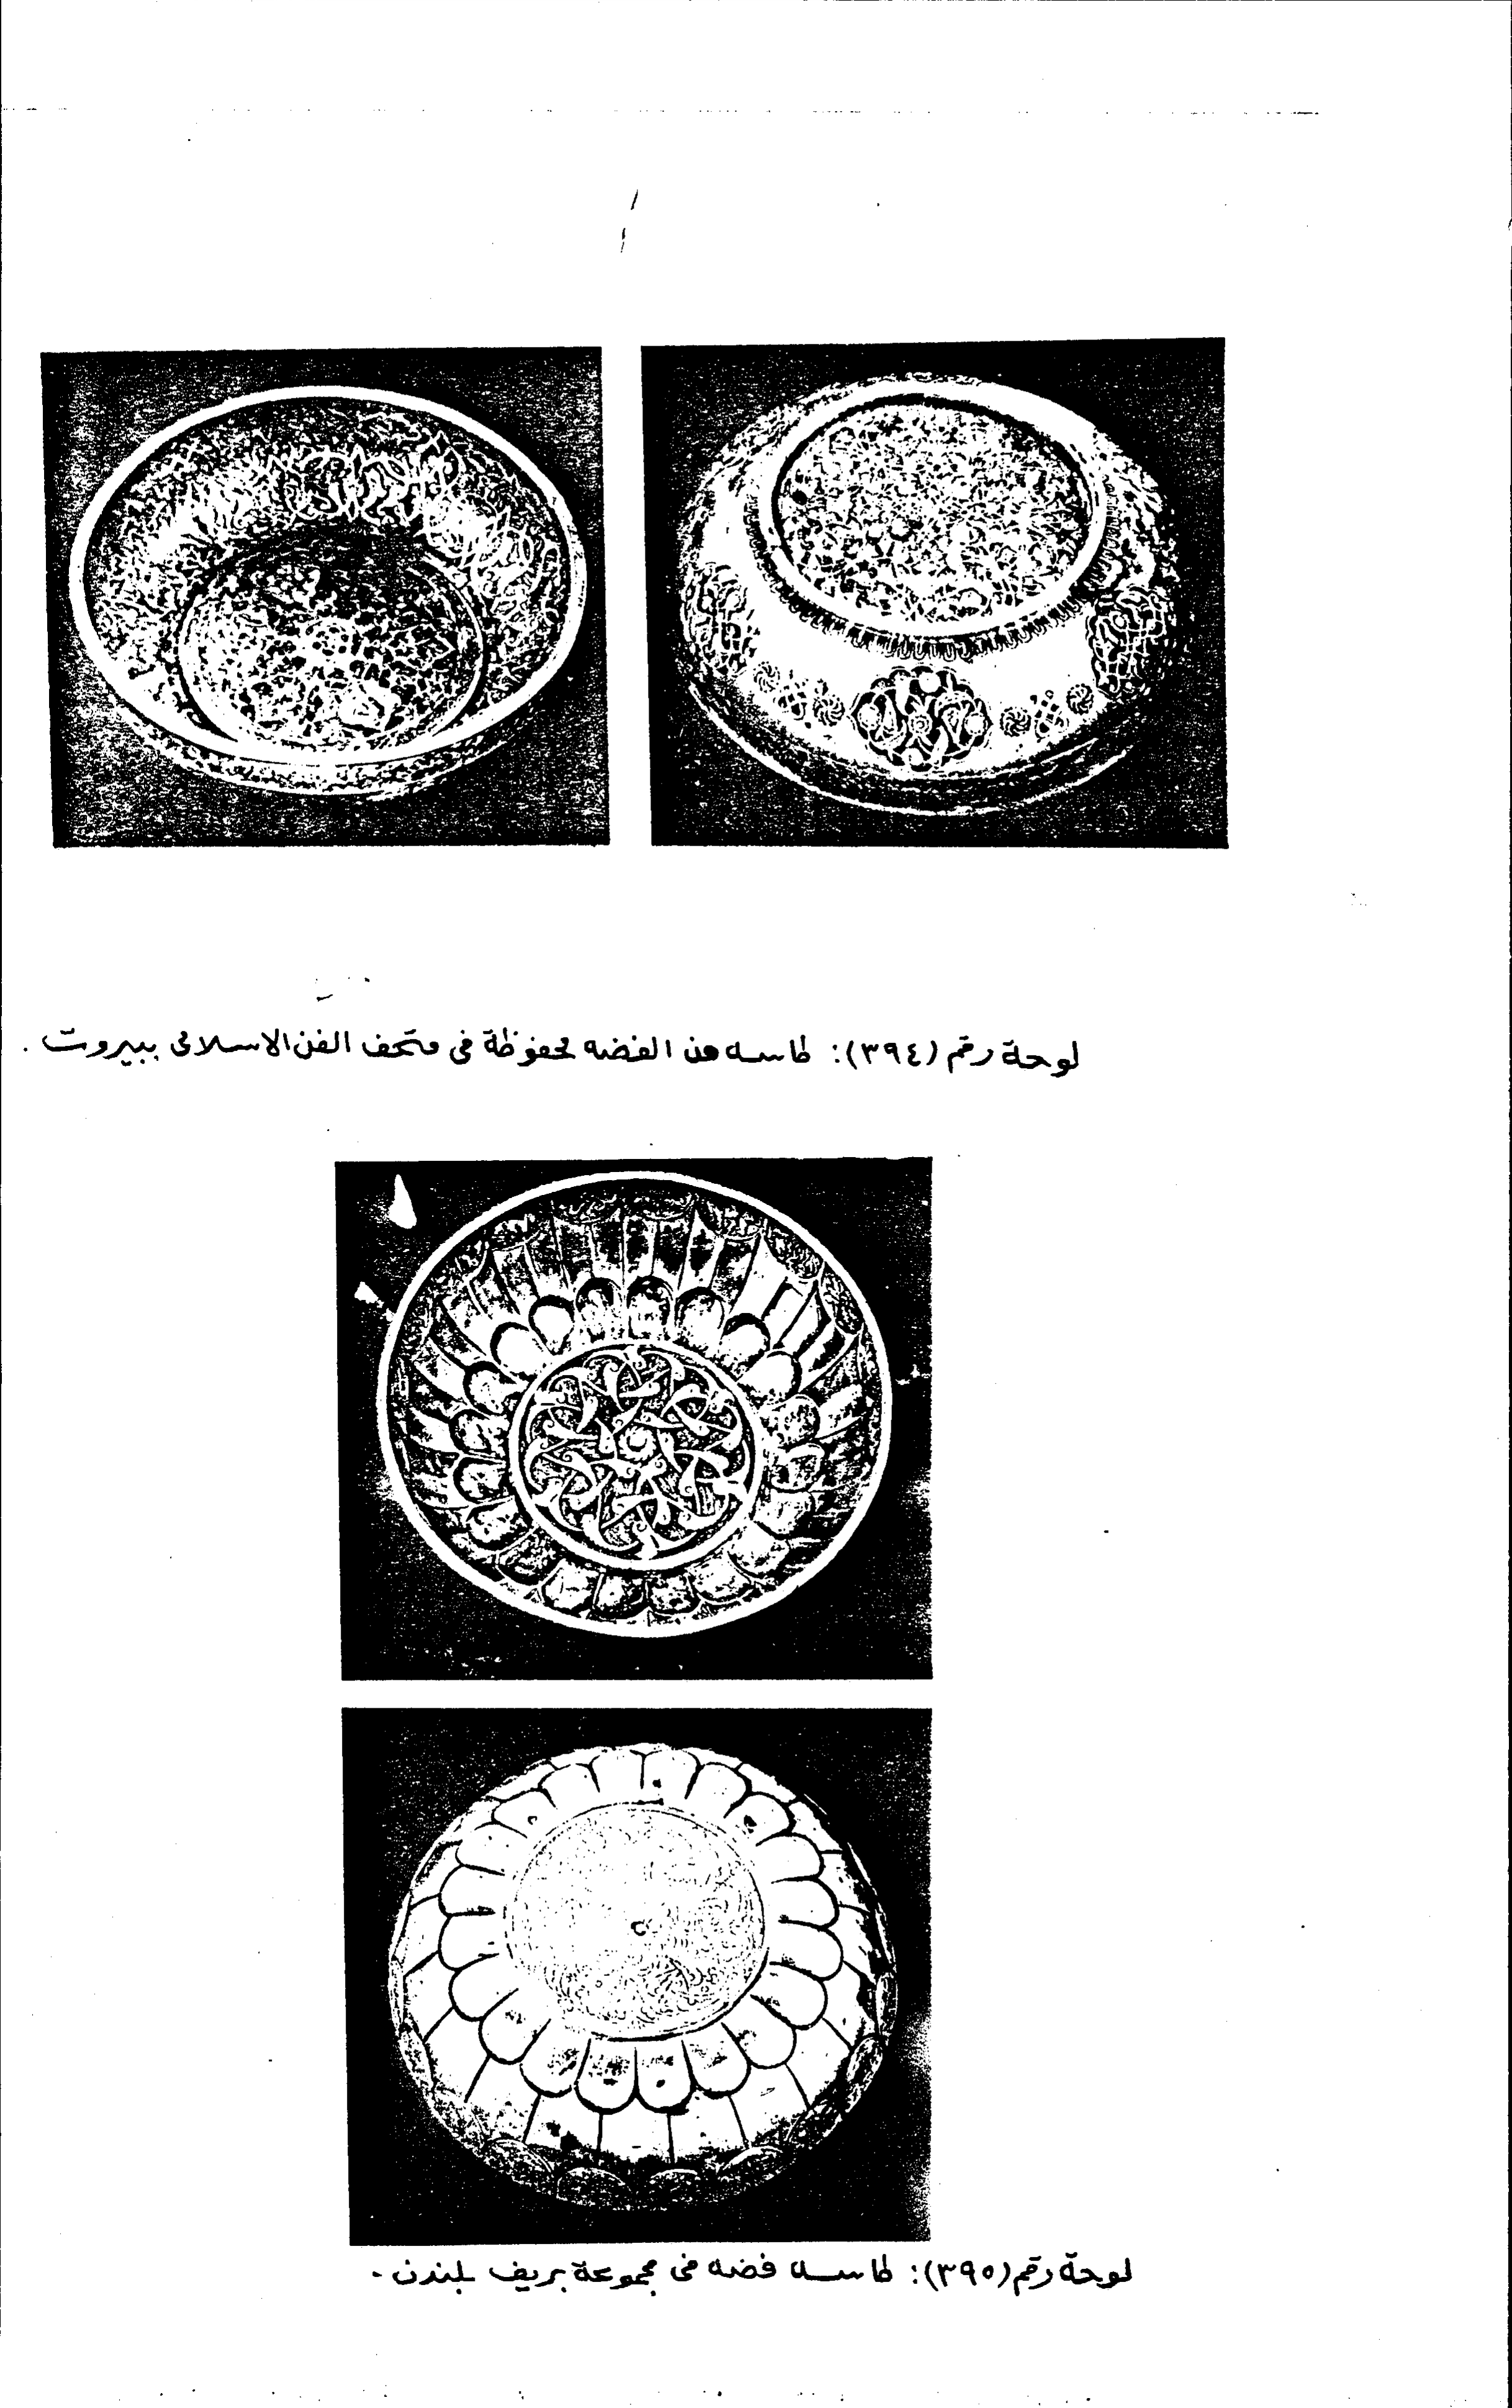 لوحة رقم (٣٩٤): طاسه من الفضه محفوظة فى متحف الفن الاسلامى ببيروت .
لوحة رقم (٣٩٥): طاسه فضه فى مجموعة بريف بلندن .